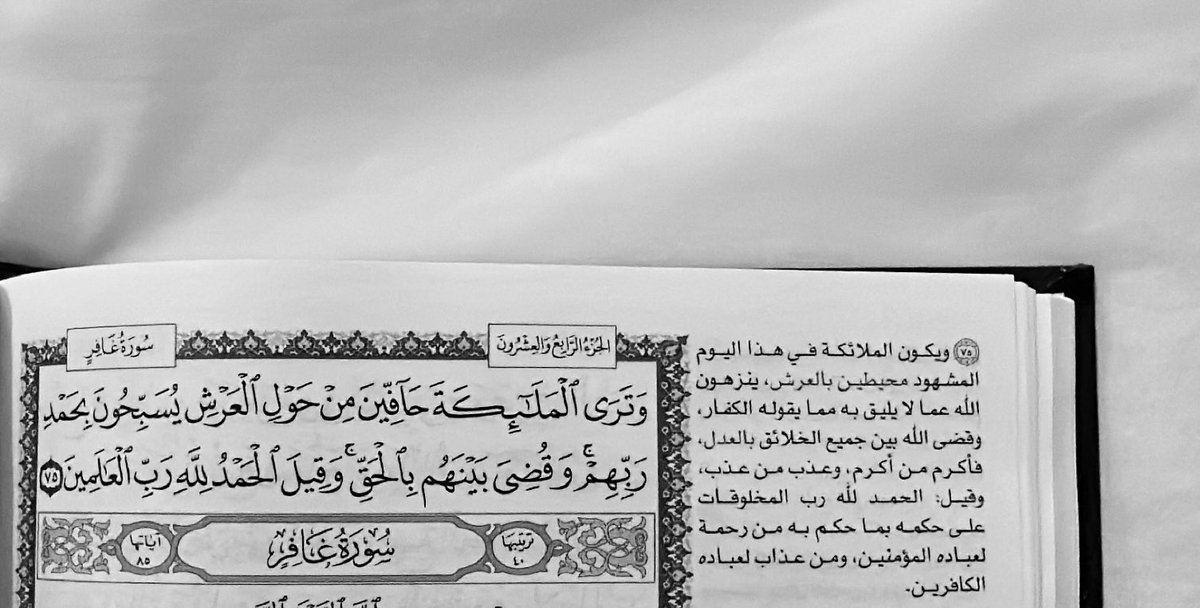 سُورَةُ غَافِرٍ
الجُزْءُ الرَّابِعُ وَالعِشْرُونَ
وَتَرَى ٱلْمَلَٰٓئِكَةَ حَآفِّينَ مِنْ حَوْلِ ٱلْعَرْشِ يُسَبِّحُونَ بِحَمْدِ
رَبِّهِمْۚ وَقُضِىَ بَيْنَهُم بِٱلْحَقِّۚ وَقِيلَ ٱلْحَمْدُ لِلَّهِ رَبِّ ٱلْعَٰلَمِينَ ٧٥
ترتيبها ٤٠
سُورَةُ غَافِرٍ
آياتها ٨٥
٧٥ ويكون الملائكة في هذا اليوم
المشهود محيطين بالعرش، ينزهون
الله عما لا يليق به مما يقوله الكفار،
وقضى الله بين جميع الخلائق بالعدل،
فأكرم من أكرم، وعذب من عذب،
وقيل: الحمد لله رب المخلوقات
على حكمه بما حكم به من رحمة
لعباده المؤمنين، ومن عذاب لعباده
الكافرين.